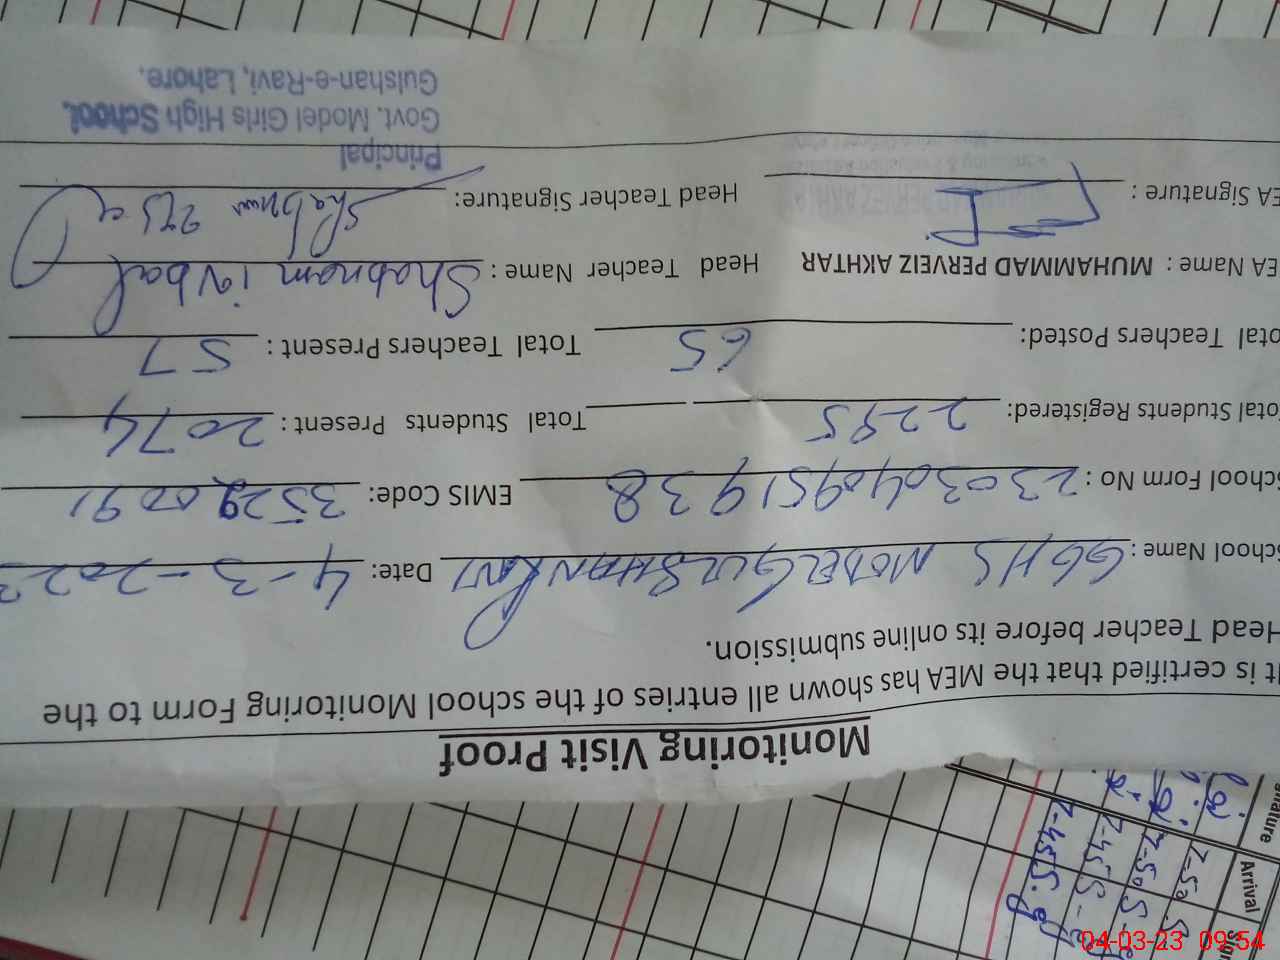 Monitoring Visit Proof
It is certified that the MEA has shown all entries of the school Monitoring Form to the
Head Teacher before its online submission.
School Name: GGHS MODEL GULSHAN RAVI Date: 4-3-2023
School Form No: 2303040951938 EMIS Code: 35290091
Total Students Registered: 2295 Total Students Present: 2074
Total Teachers Posted: 65 Total Teachers Present: 57
EA Name: MUHAMMAD PERVEIZ AKHTAR Head Teacher Name: Shabnam iqbal
EA Signature: Head Teacher Signature: Shabnam
Principal
Govt. Model Girls High School,
Gulshan-e-Ravi, Lahore.
Arrival
7-50
7-50
7-45
7-45
04-03-23 09:54